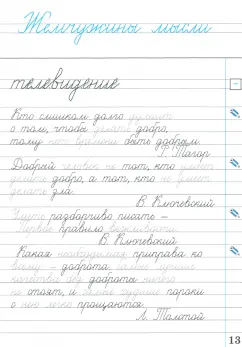 Жемчужины мысли
телевидение
Кто слишком долго думает
о том, чтобы делать добро,
тому нет времени быть добрым.
Р. Тагор
Добрый человек не тот, кто умеет
делать добро, а тот, кто не умеет
делать зла.
В. Ключевский
Уметь разборчиво писать –
первое правило вежливости.
В. Ключевский
Какая необходимая приправа ко
всему – доброта. Самые лучшие
качества без доброты ничего
не стоят, и самые худшие пороки
с нею легко прощаются.
Л. Толстой
13